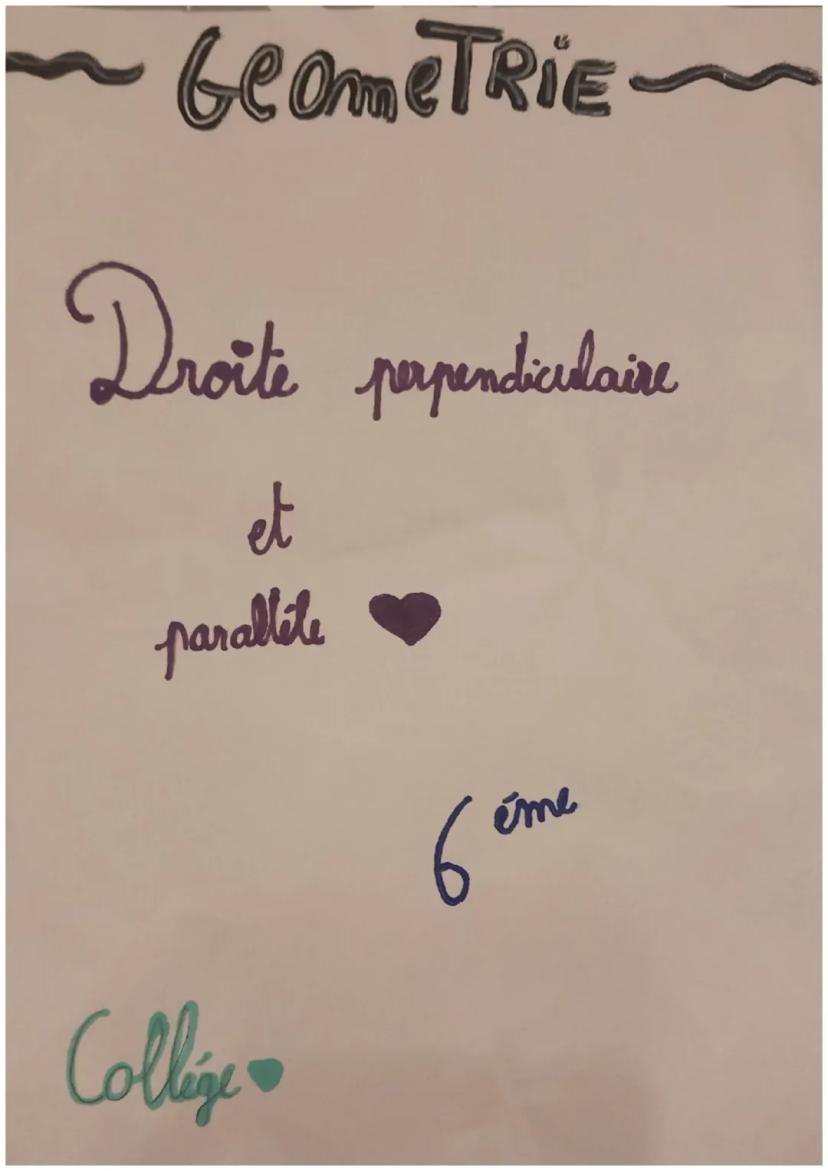 GeOmeTRiE
Droite perpendiculaire
et
parallèle
6 éme
Collége